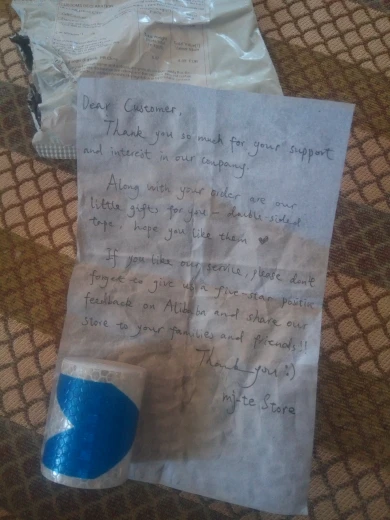 Dear Customer,
Thank you so much for your support
and interest in our company.
Along with your order are our
little gifts for you - double sided
tape, hope you like them ♥
If you like our service, please don't
forget to give us a five-star positive
feedback on Alibaba and share our
store to your families and friends!!
Thank you :)
mj-te Store